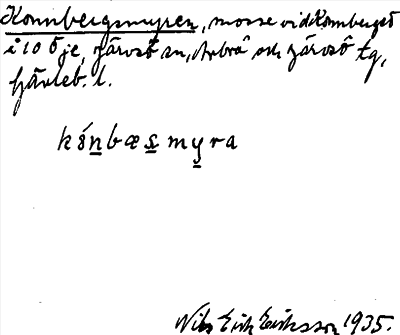 Konnbergsmyren, mosse vid Konnberget
i 10 Öje, Järvsö sn, Arbrå och Järvsö tg,
Gävleb. l.
kónbæsmyra
Nils Erik Eriksson 1935.